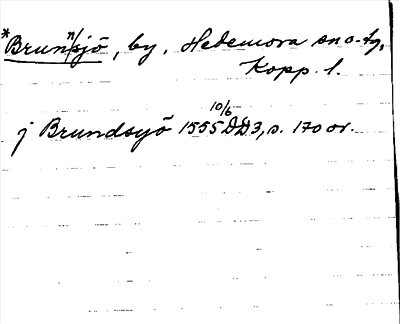 *Brunnsjö, by, Hedemora sn o. tg,
Kopp. l.
j Brundsyö 1555 10/6 DD3, s. 170 or.